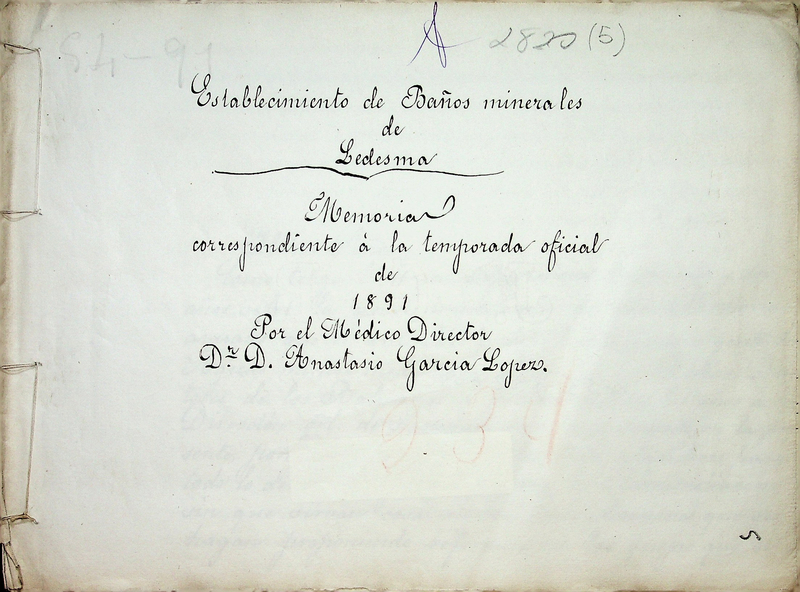 A 2820 (5)
84-91
Establecimiento de Baños minerales
de
Ledesma
Memoria
correspondiente á la temporada oficial
de
1891
Por el Médico Director
Dr. D. Anastasio Garcia Lopez.
934
5